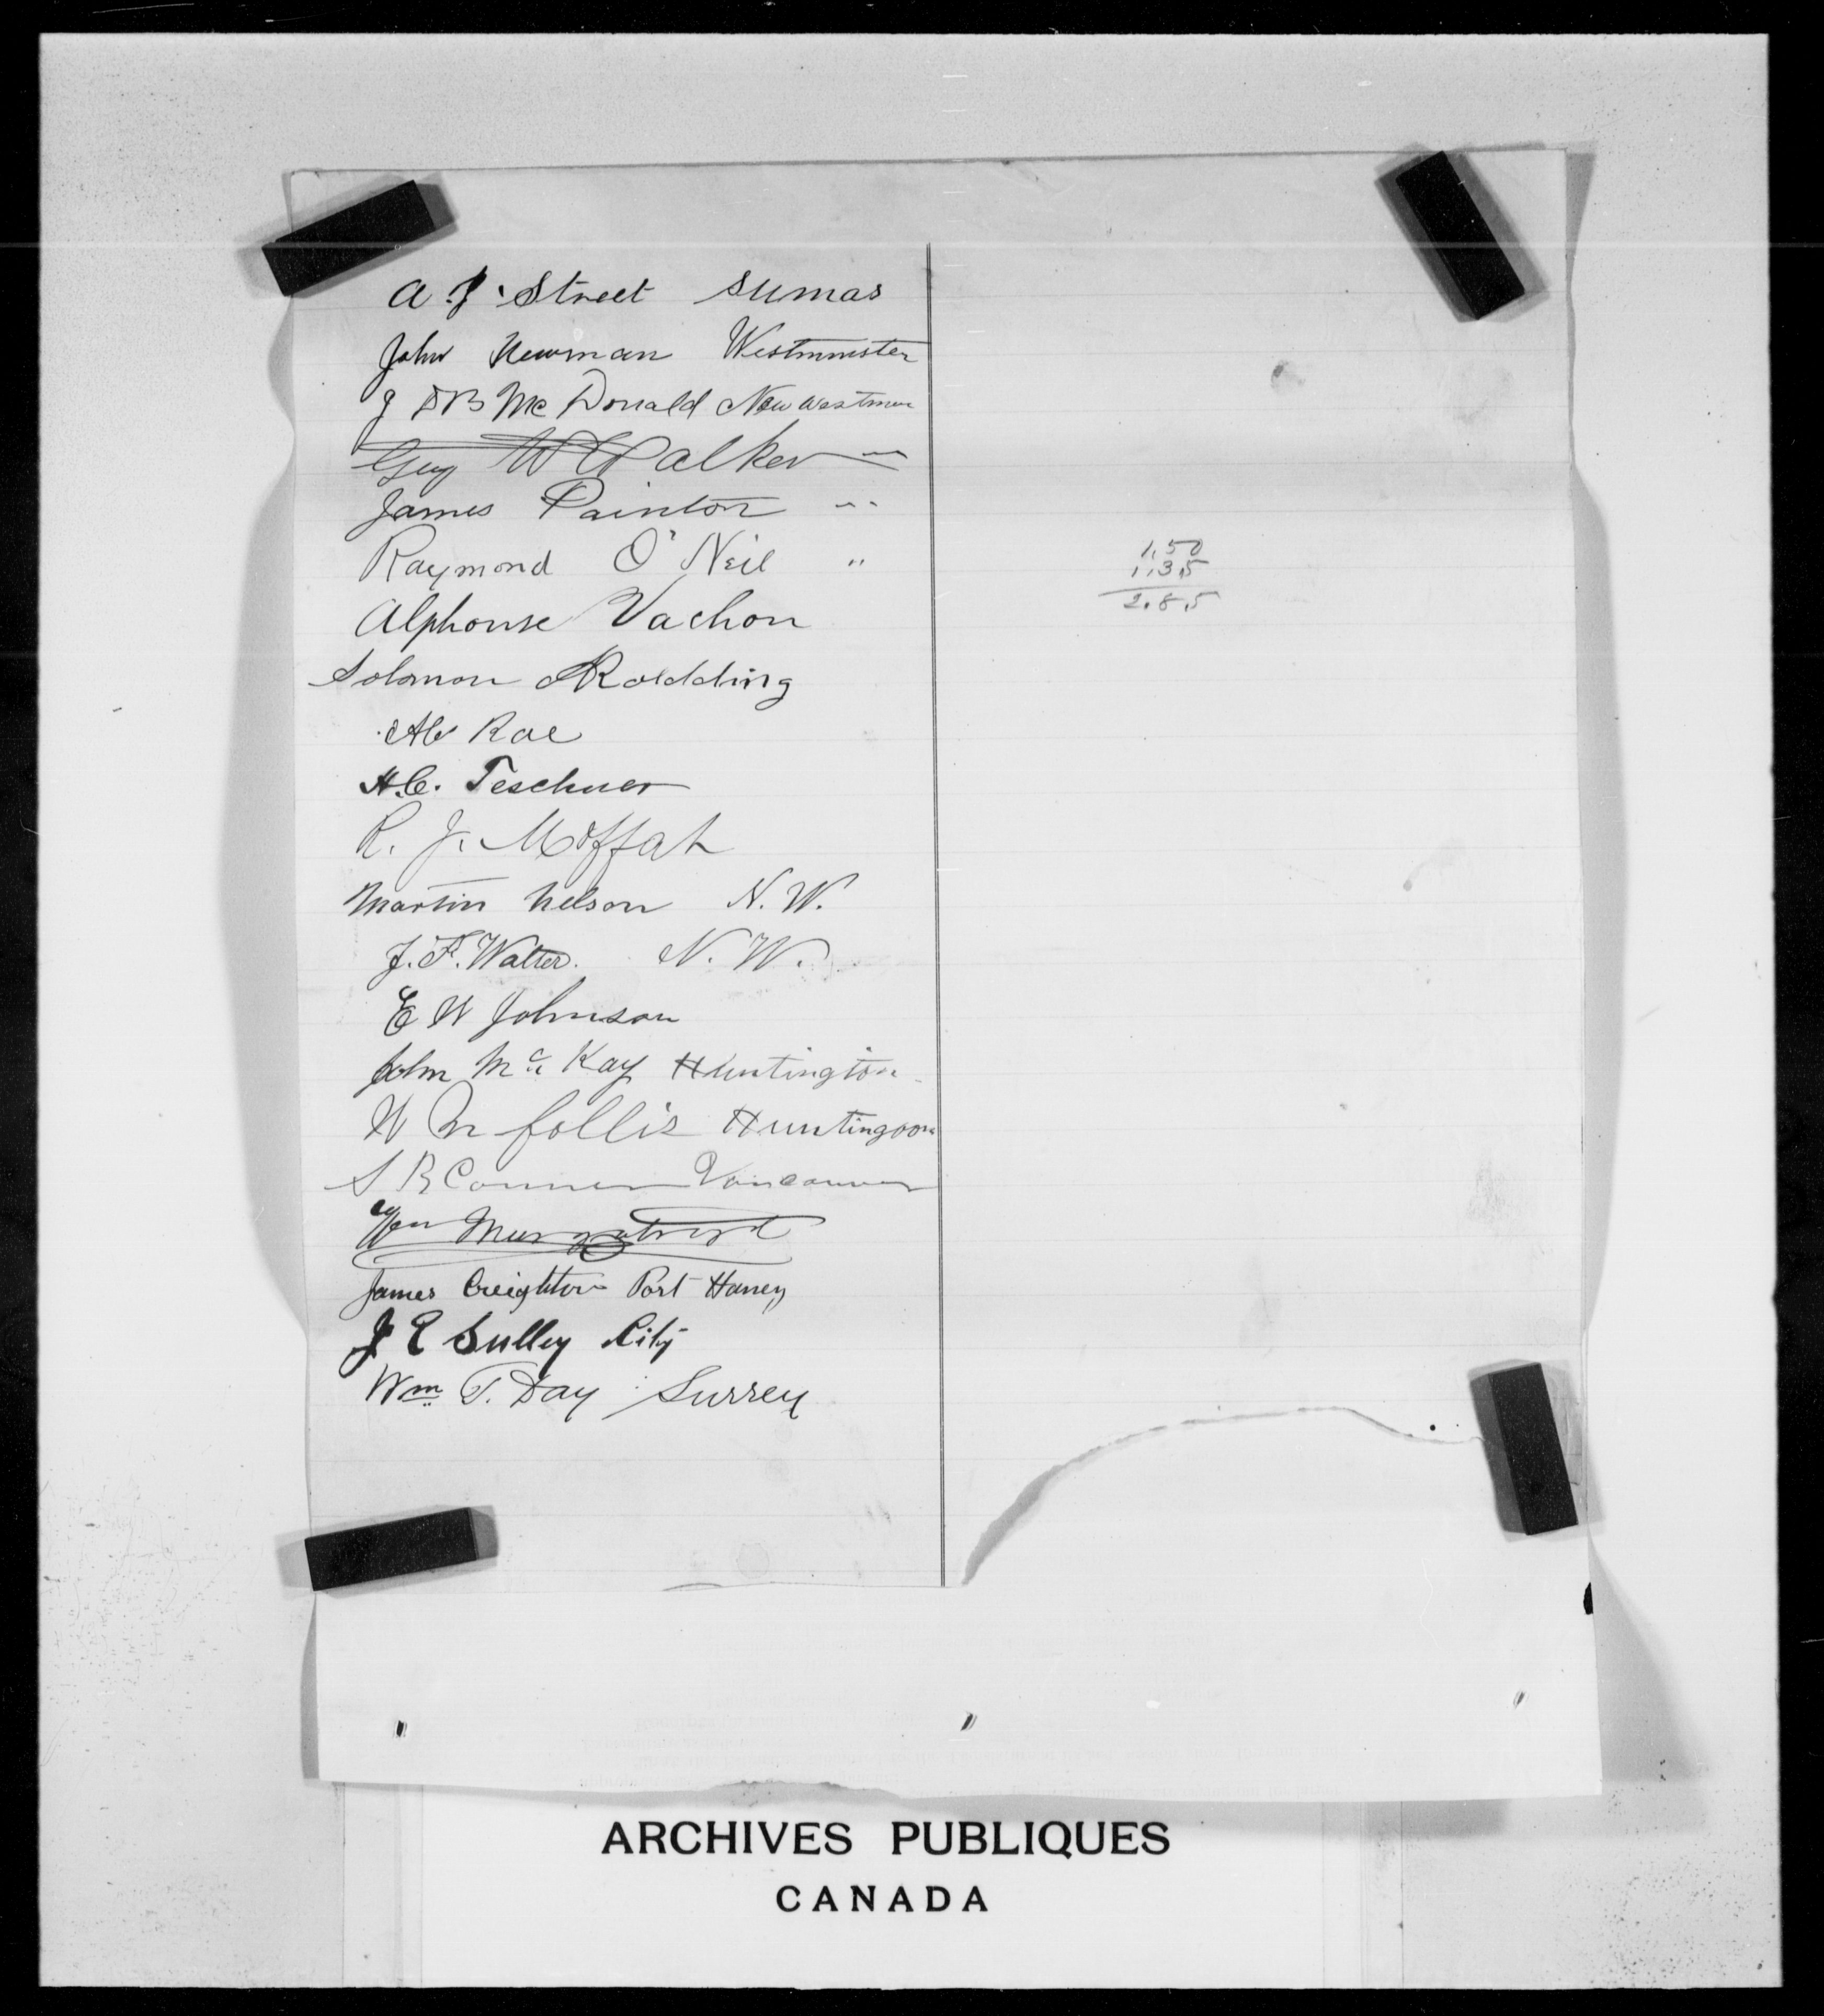 A. J. Street Sumas
John Newman Westminster
J D B McDonald New Westmin
Guy W Walker "
James Painton "
Raymond O'Neil "
Alphonse Vachon
Solomon Rodding
Rae
H.C. Teschner
R. J. Moffat
Martin Nelson N.W.
J. F. Walter. N.W.
E W Johnson
John Mc Kay Huntington
W M follis Huntingoon
S R Conner Vancouver
Wm Murgatroyd
James Creighton Port Haney
J E Sulley City
Wm T. Day Surrey
1.50
1.35
2.85
ARCHIVES PUBLIQUES
CANADA